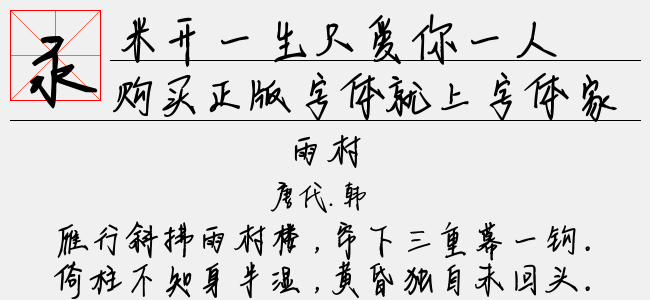 永
米开一生只爱你一人
购买正版字体就上字体家
雨村
唐代.韩
雁行斜拂雨村楼,帘下三重幕一钩.
倚柱不知身半湿,黄昏独自未回头.